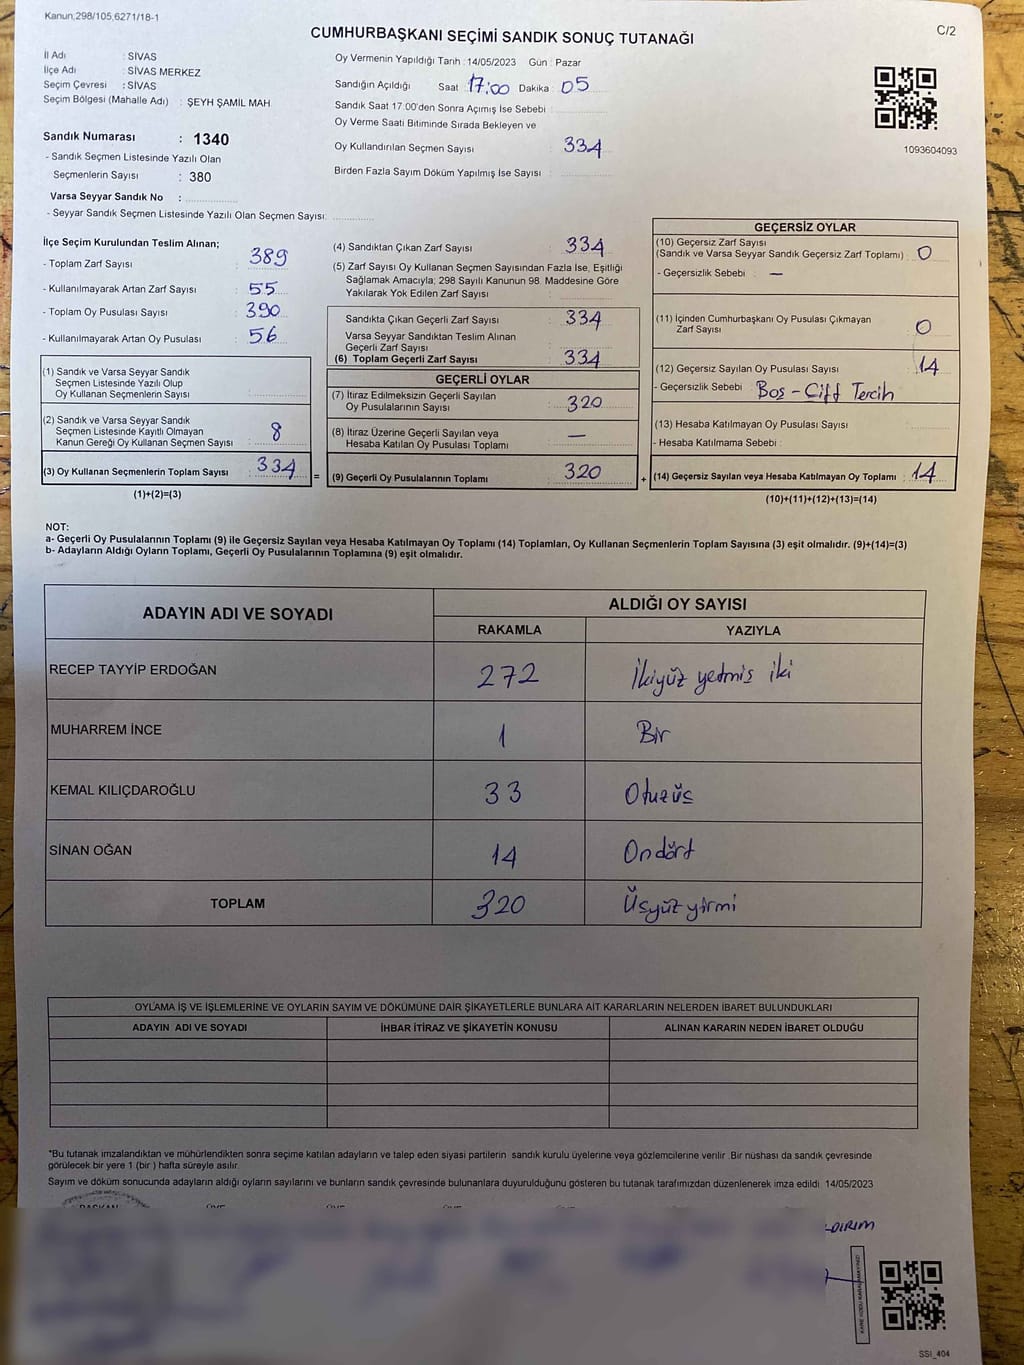 Kanun;298/105,6271/18-1
C/2
CUMHURBAŞKANI SEÇİMİ SANDIK SONUÇ TUTANAĞI
İl Adı : SİVAS
İlçe Adı : SİVAS MERKEZ
Seçim Çevresi : SİVAS
Seçim Bölgesi (Mahalle Adı) : ŞEYH ŞAMİL MAH
Sandık Numarası : 1340
- Sandık Seçmen Listesinde Yazılı Olan
Seçmenlerin Sayısı : 380
Varsa Seyyar Sandık No :
- Seyyar Sandık Seçmen Listesinde Yazılı Olan Seçmen Sayısı:
Oy Vermenin Yapıldığı Tarih : 14/05/2023 Gün : Pazar
Sandığın Açıldığı Saat 17:00 Dakika : 05
Sandık Saat 17.00'den Sonra Açımış İse Sebebi :
Oy Verme Saati Bitiminde Sırada Bekleyen ve
Oy Kullandırılan Seçmen Sayısı : 334
Birden Fazla Sayım Döküm Yapılmış İse Sayısı :
1093604093
İlçe Seçim Kurulundan Teslim Alınan;
- Toplam Zarf Sayısı : 389
- Kullanılmayarak Artan Zarf Sayısı : 55
- Toplam Oy Pusulası Sayısı : 390
- Kullanılmayarak Artan Oy Pusulası : 56
(1) Sandık ve Varsa Seyyar Sandık
Seçmen Listesinde Yazılı Olup
Oy Kullanan Seçmenlerin Sayısı :
(2) Sandık ve Varsa Seyyar Sandık
Seçmen Listesinde Kayıtlı Olmayan
Kanun Gereği Oy Kullanan Seçmen Sayısı : 8
(3) Oy Kullanan Seçmenlerin Toplam Sayısı : 334
(1)+(2)=(3)
(4) Sandıktan Çıkan Zarf Sayısı : 334
(5) Zarf Sayısı Oy Kullanan Seçmen Sayısından Fazla İse, Eşitliği
Sağlamak Amacıyla; 298 Sayılı Kanunun 98. Maddesine Göre
Yakılarak Yok Edilen Zarf Sayısı :
Sandıkta Çıkan Geçerli Zarf Sayısı : 334
Varsa Seyyar Sandıktan Teslim Alınan
Geçerli Zarf Sayısı :
(6) Toplam Geçerli Zarf Sayısı : 334
GEÇERLİ OYLAR
(7) İtiraz Edilmeksizin Geçerli Sayılan
Oy Pusulalarının Sayısı : 320
(8) İtiraz Üzerine Geçerli Sayılan veya
Hesaba Katılan Oy Pusulası Toplamı : —
= (9) Geçerli Oy Pusulalarının Toplamı : 320
GEÇERSİZ OYLAR
(10) Geçersiz Zarf Sayısı
(Sandık ve Varsa Seyyar Sandık Geçersiz Zarf Toplamı) : 0
- Geçersizlik Sebebi : —
(11) İçinden Cumhurbaşkanı Oy Pusulası Çıkmayan
Zarf Sayısı : 0
(12) Geçersiz Sayılan Oy Pusulası Sayısı : 14
- Geçersizlik Sebebi : Boş - Çift Tercih
(13) Hesaba Katılmayan Oy Pusulası Sayısı :
- Hesaba Katılmama Sebebi :
+ (14) Geçersiz Sayılan veya Hesaba Katılmayan Oy Toplamı : 14
(10)+(11)+(12)+(13)=(14)
NOT:
a- Geçerli Oy Pusulalarının Toplamı (9) ile Geçersiz Sayılan veya Hesaba Katılmayan Oy Toplamı (14) Toplamları, Oy Kullanan Seçmenlerin Toplam Sayısına (3) eşit olmalıdır. (9)+(14)=(3)
b- Adayların Aldığı Oyların Toplamı, Geçerli Oy Pusulalarının Toplamına (9) eşit olmalıdır.
ADAYIN ADI VE SOYADI ALDIĞI OY SAYISI
RAKAMLA YAZIYLA
RECEP TAYYİP ERDOĞAN 272 İkiyüz yetmis iki
MUHARREM İNCE 1 Bir
KEMAL KILIÇDAROĞLU 33 Otuzüs
SİNAN OĞAN 14 Ondört
TOPLAM 320 Üsyüz yirmi
OYLAMA İŞ VE İŞLEMLERİNE VE OYLARIN SAYIM VE DÖKÜMÜNE DAİR ŞİKAYETLERLE BUNLARA AİT KARARLARIN NELERDEN İBARET BULUNDUKLARI
ADAYIN ADI VE SOYADI İHBAR İTİRAZ VE ŞİKAYETİN KONUSU ALINAN KARARIN NEDEN İBARET OLDUĞU
*Bu tutanak imzalandıktan ve mühürlendikten sonra seçime katılan adayların ve talep eden siyasi partilerin sandık kurulu üyelerine veya gözlemcilerine verilir .Bir nüshası da sandık çevresinde
görülecek bir yere 1 (bir ) hafta süreyle asılır.
Sayım ve döküm sonucunda adayların aldığı oyların sayılarını ve bunların sandık çevresinde bulunanlara duyurulduğunu gösteren bu tutanak tarafımızdan düzenlenerek imza edildi. 14/05/2023
BAŞKAN ÜYE ÜYE ÜYE ÜYE ÜYE
LDIRIM
KARE KODU KARALAMAYINIZ!
SSI_404